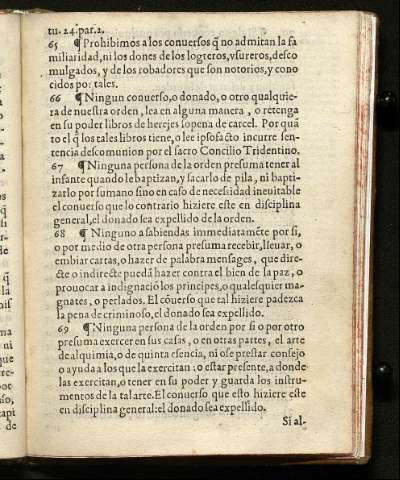 tu. 24. par. 2.
65 ¶ Prohibimos a los conuersos q̃ no admitan la fa
miliaridad, ni los dones de los logreros, vsureros, desco
mulgados, y de los robadores que son notorios, y cono
cidos por tales.
66 ¶ Ningun conuerso, o donado, o otro qualquie-
ra de nuestra orden, lea en alguna manera, o retenga
en su poder libros de herejes so pena de carcel. Por quã
to el q̃ los tales libros tiene, o lee ipso facto incurre sen-
tencia descomunion por el sacro Concilio Tridentino.
67 ¶ Ninguna persona de la orden presuma tener al
infante quando le baptizan, y sacarlo de pila, ni bapti-
zarlo por su mano sino en caso de necesidad ineuitable
el conuerso que lo contrario hiziere este en disciplina
general, el donado sea expellido de la orden.
68 ¶ Ninguno a sabiendas immediatamẽte por si,
o por medio de otra persona presuma recebir, lleuar, o
embiar cartas, o hazer de palabra mensages, que dire-
cte o indirecte puedã hazer contra el bien de la paz, o
prouocar a indignaciõ los principes, o qualesquier ma-
gnates, o perlados. El cõuerso que tal hiziere padezca
la pena de criminoso, el donado sea expellido.
69 ¶ Ninguna persona de la orden por si o por otro
presuma exercer en sus casas, o en otras partes, el arte
de alquimia, o de quinta esencia, ni ose prestar consejo
o ayuda a los que la exercitan: o estar presente, a donde
las exercitan, o tener en su poder y guarda los instru-
mentos de la tal arte. El conuerso que esto hiziere este
en disciplina general: el donado sea expellido.
Si al-